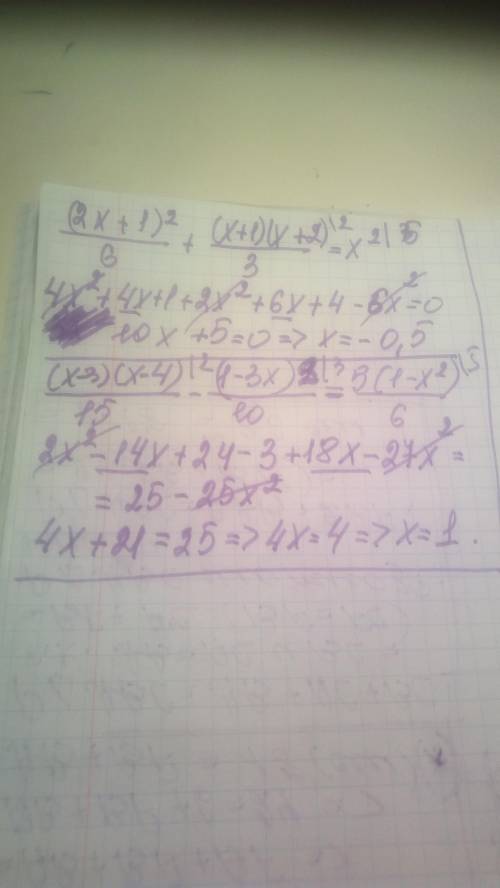 (2x+1)²/6 + (x+1)(x+2)/3 |2 = x² |6
4x²+4x+1+2x²+6x+4-6x²=0
10x+5=0=>x=-0,5
(x-3)(x-4)/15 |2 - (1-3x)²/10 |3 = 5(1-x²)/6 |5
2x²-14x+24-3+18x-27x²=
=25-25x²
4x+21=25=>4x=4=>x=1.